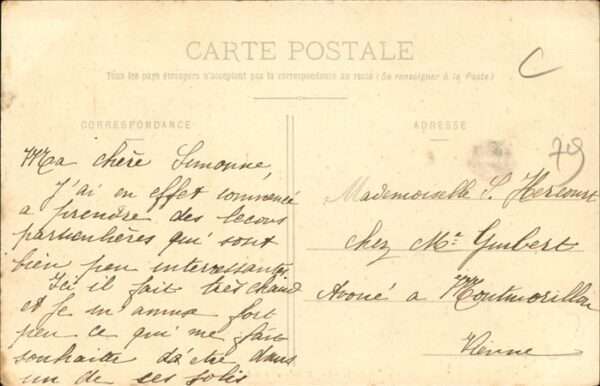 CARTE POSTALE
Tous les pays étrangers n'acceptent pas la correspondance au recto (Se renseigner à la Poste)
CORRESPONDANCE
ADRESSE
C
79
Ma chère Simonne,
J'ai en effet commencé
a prendre des leçons
particulières qui sont
bien peu interessantes
Ici il fait très chaud
et je m'amuse fort
peu ce qui me fait
souhaiter d'être dans
un de ces jolis
Mademoiselle S. Hercourt
chez Me Guibert
Avoué a Montmorillon
Vienne